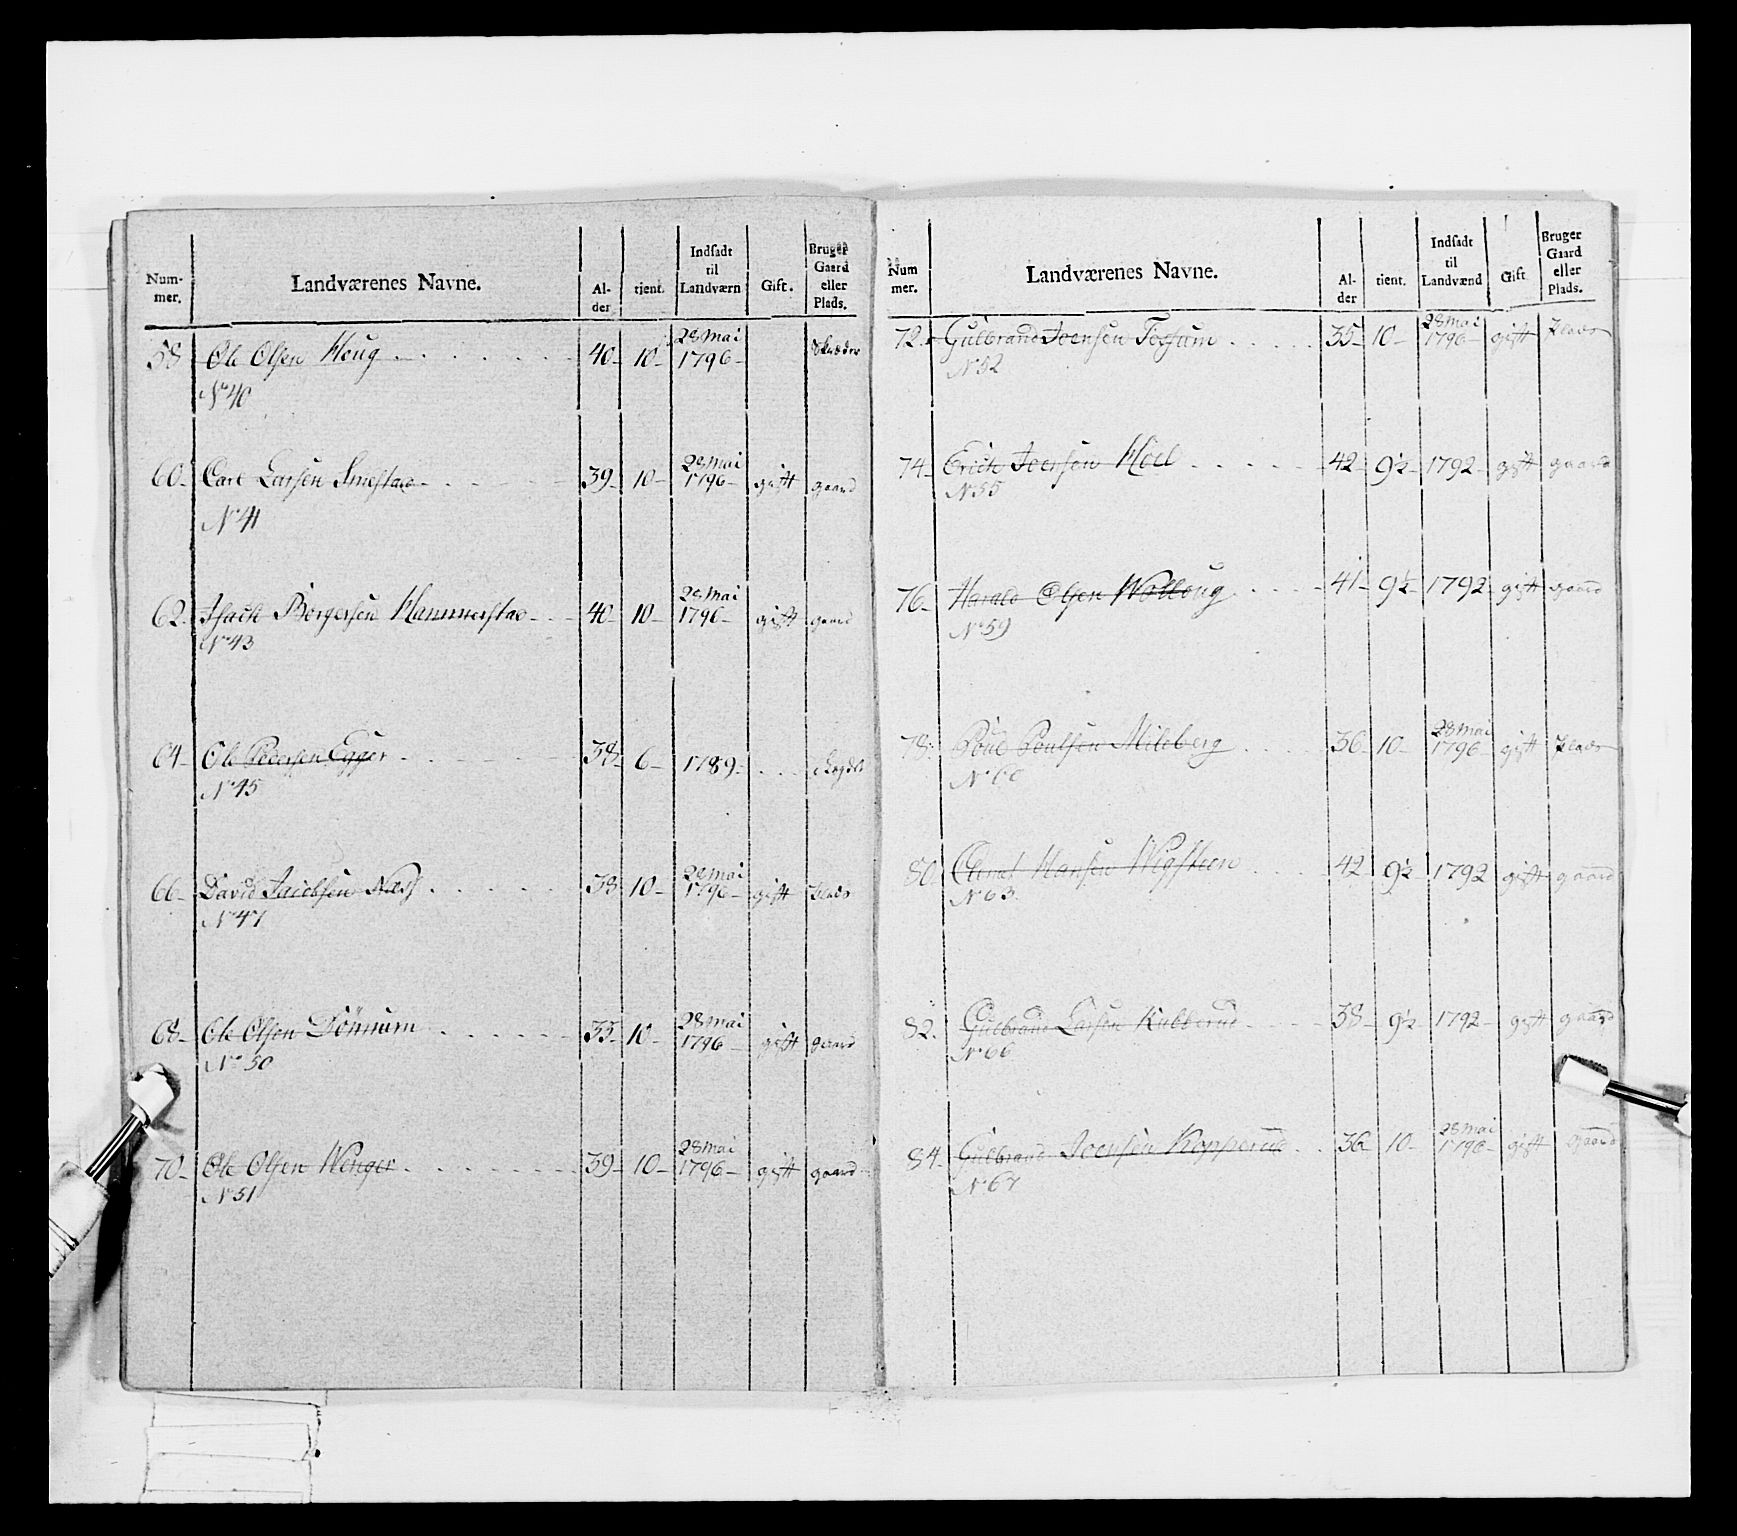 Num-
mer.
Landværenes Navne.
Al-
der
tient.
Indsadt
til
Landværn
Gift.
Bruger
Gaard
eller
Plads.
58 Ole Olsen Houg 40 10 28 Mai 1796 Skrædder
No 40
60 Carl Larsen Smestad 39 10 28 Mai 1796 gift gaard
No 41
62 Isach Borgersen Hammerstad 40 10 28 Mai 1796 gift gaard
No 43
64 Ole Pedersen Egger 38 6 1789
No 45
66 David Jacobsen Næss 38 10 28 Mai 1796 gift Plads
No 47
68 Ole Olsen Dönnum 35 10 28 Mai 1796 gift gaard
No 50
70 Ole Olsen Wenger 39 10 28 Mai 1796 gift gaard
No 51
Num
mer.
Landværenes Navne.
Al-
der
tient.
Indsadt
til
Landværnd
Gift
Bruger
Gaard
eller
Plads.
72 Gulbrand Joensen Fossum 35 10 28 Mai 1796 gift Plads
No 52
74 Erich Iversen Hoel 42 9½ 1792 gift gaard
No 55
76 Harald Olsen Wolloug 41 9½ 1792 gift gaard
No 59
78 Poulsen Mileberg 36 10 28 Mai 1796 gift Plads
No 60
80 Hansen Wigsteen 42 9½ 1792 gift gaard
No 63
82. Gulbrand Larsen Kubberud 38 9½ 1792 gift gaard
No 66
84 Gulbrand Joensen Kopperud 36 10 28 Mai 1796 gift gaard
No 67